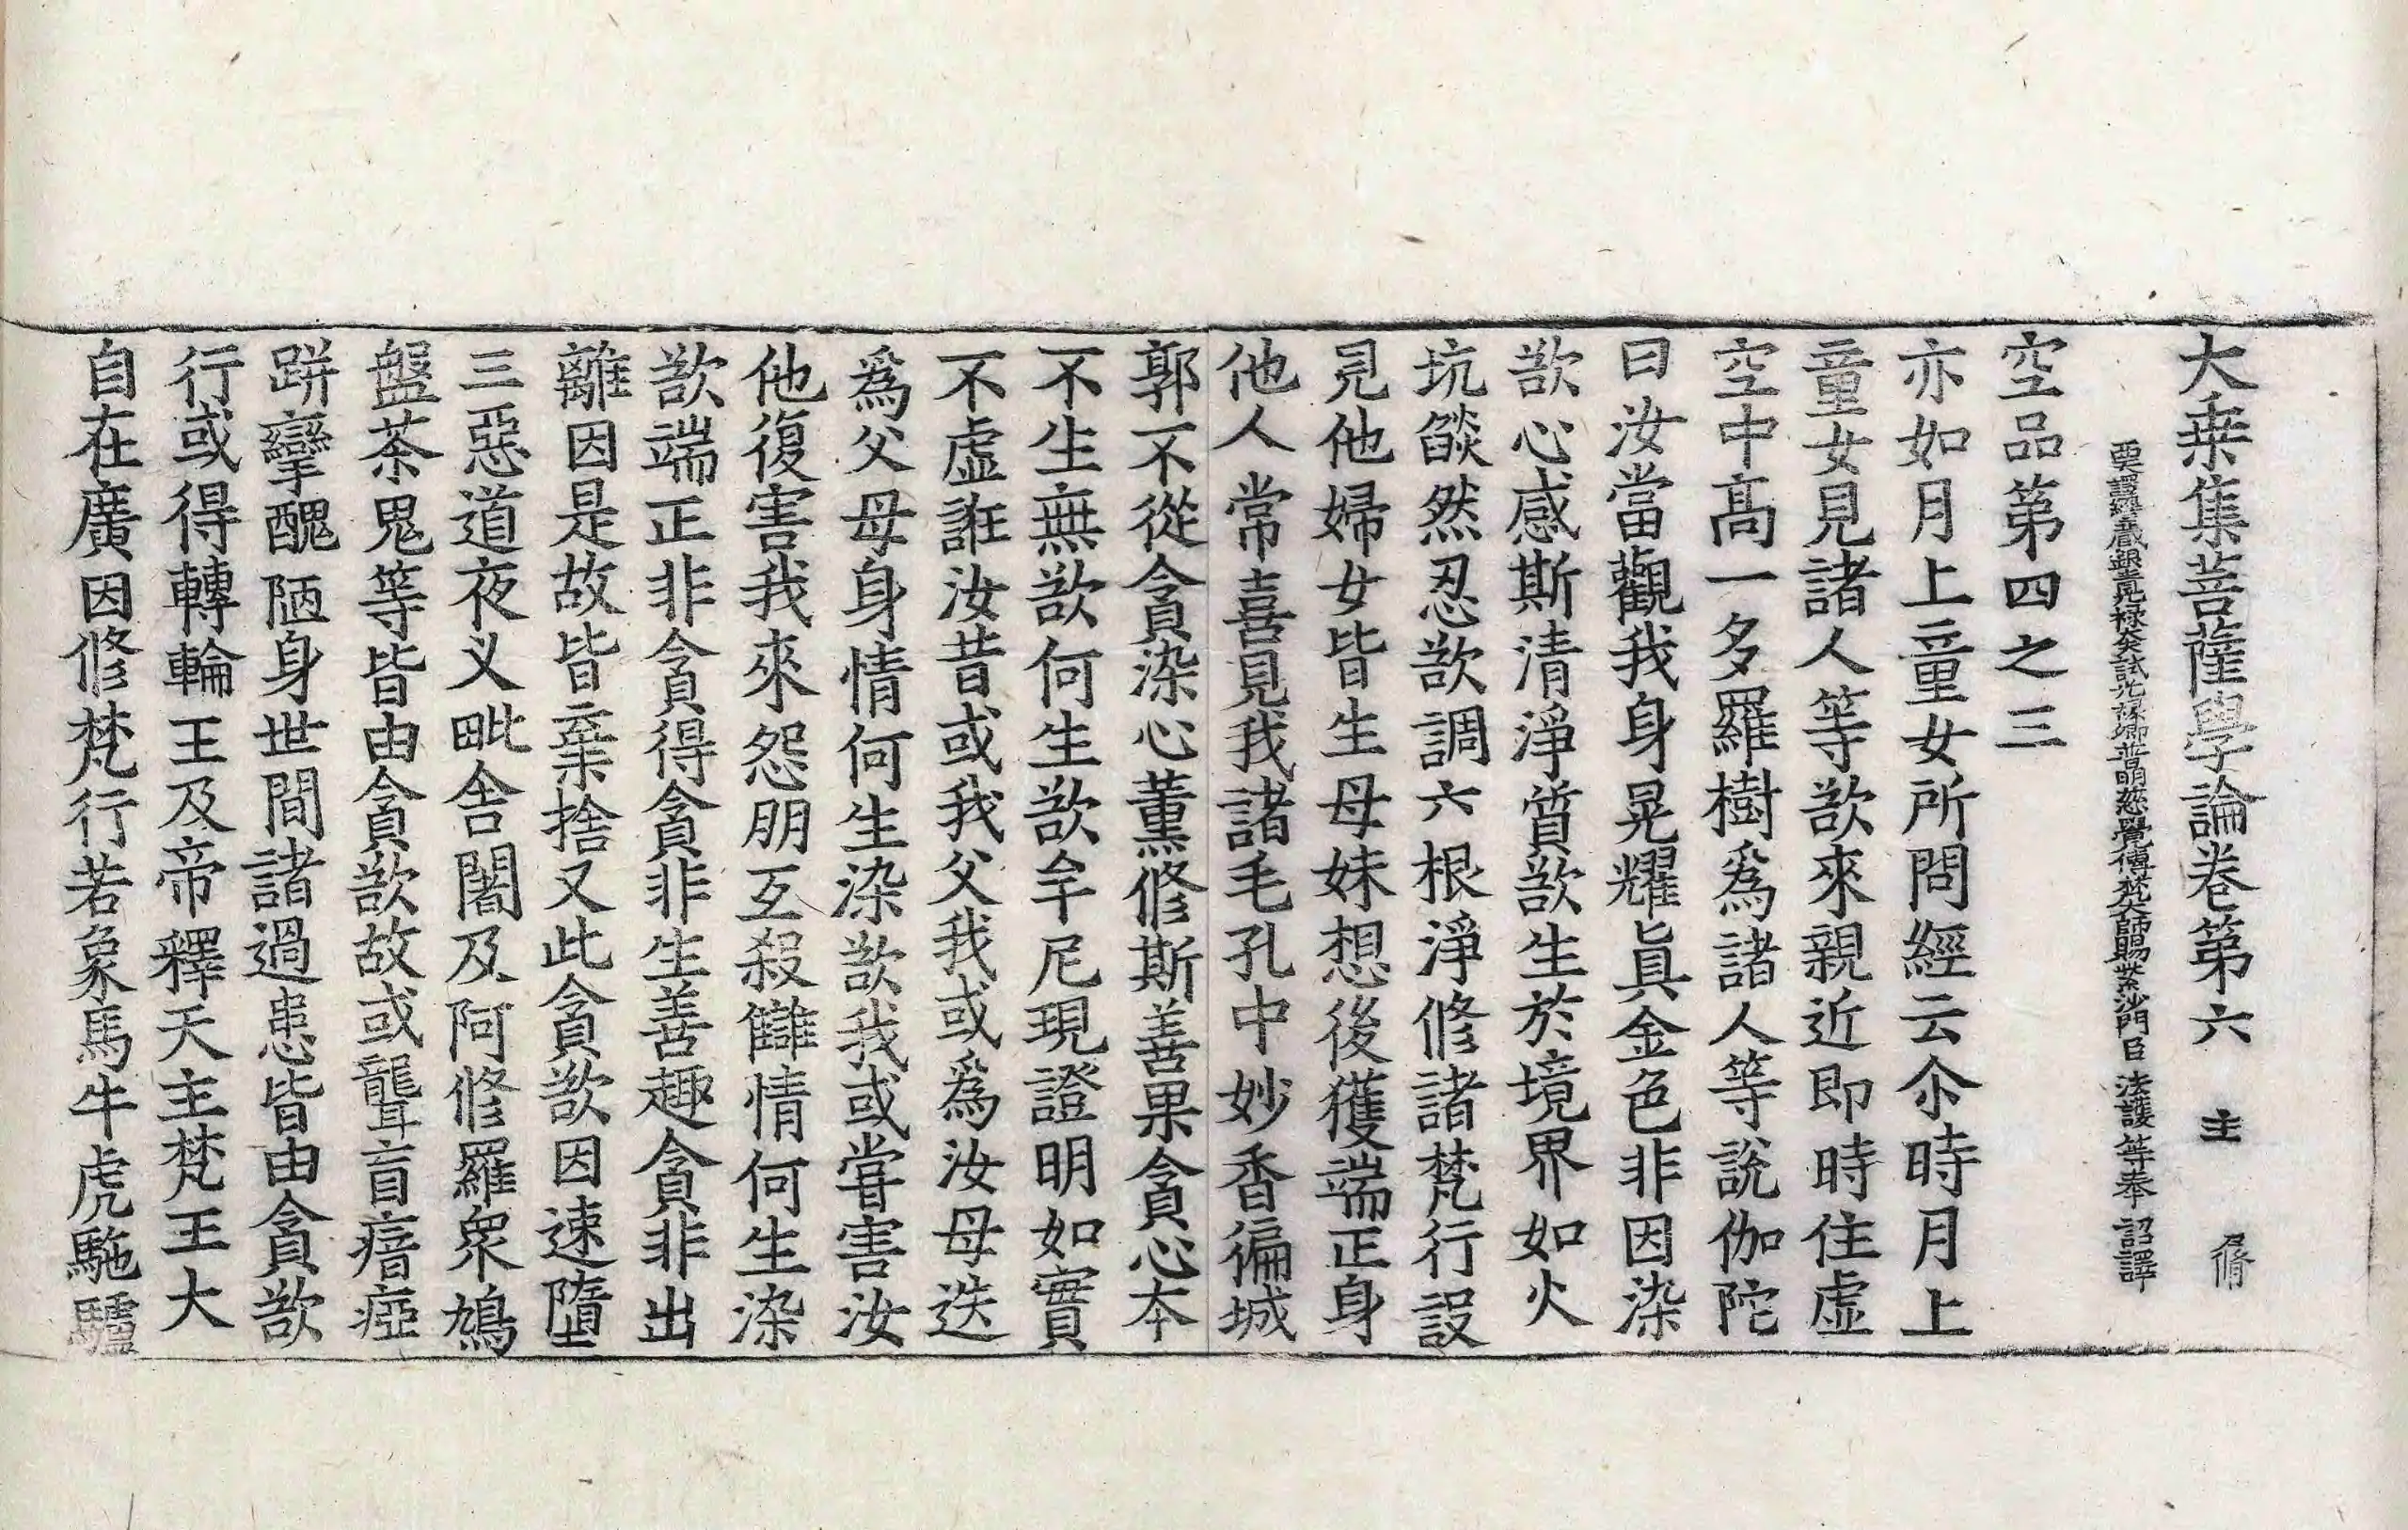 大乗集菩薩學論卷第六 主 脩
譯經三藏銀青光禄大夫試光禄卿普明慈覺傳梵大師賜紫沙門臣法護等奉詔譯
空品第四之三
亦如月上童女所問經云尒時月上
童女見諸人等欲來親近即時住虛
空中高一多羅樹爲諸人等說伽陀
曰汝當觀我身晃耀真金色非因染
欲心感斯清淨質欲生於境界如火
坑燄然忍欲調六根淨修諸梵行設
見他婦女皆生母妹想後獲端正身
他人常喜見我諸毛孔中妙香徧城
郭不從貪染心薰修斯善果貪心本
不生無欲何生欲牟尼現證明如實
不虛誑汝昔或我父我或爲汝母迭
爲父母身情何生染欲我或甞害汝
他復害我來怨朋互殺讎情何生染
欲端正非貪得貪非生善趣貪非出
離因是故皆棄捨又此貪欲因速墮
三惡道夜义毗舍闍及阿修羅衆鳩
盤茶鬼等皆由貪欲故或聾盲瘖瘂
跰攣醜陋身世間諸過患皆由貪欲
行或得轉輪王及帝釋天主梵王大
自在廣因修梵行若象馬牛虎駞驢